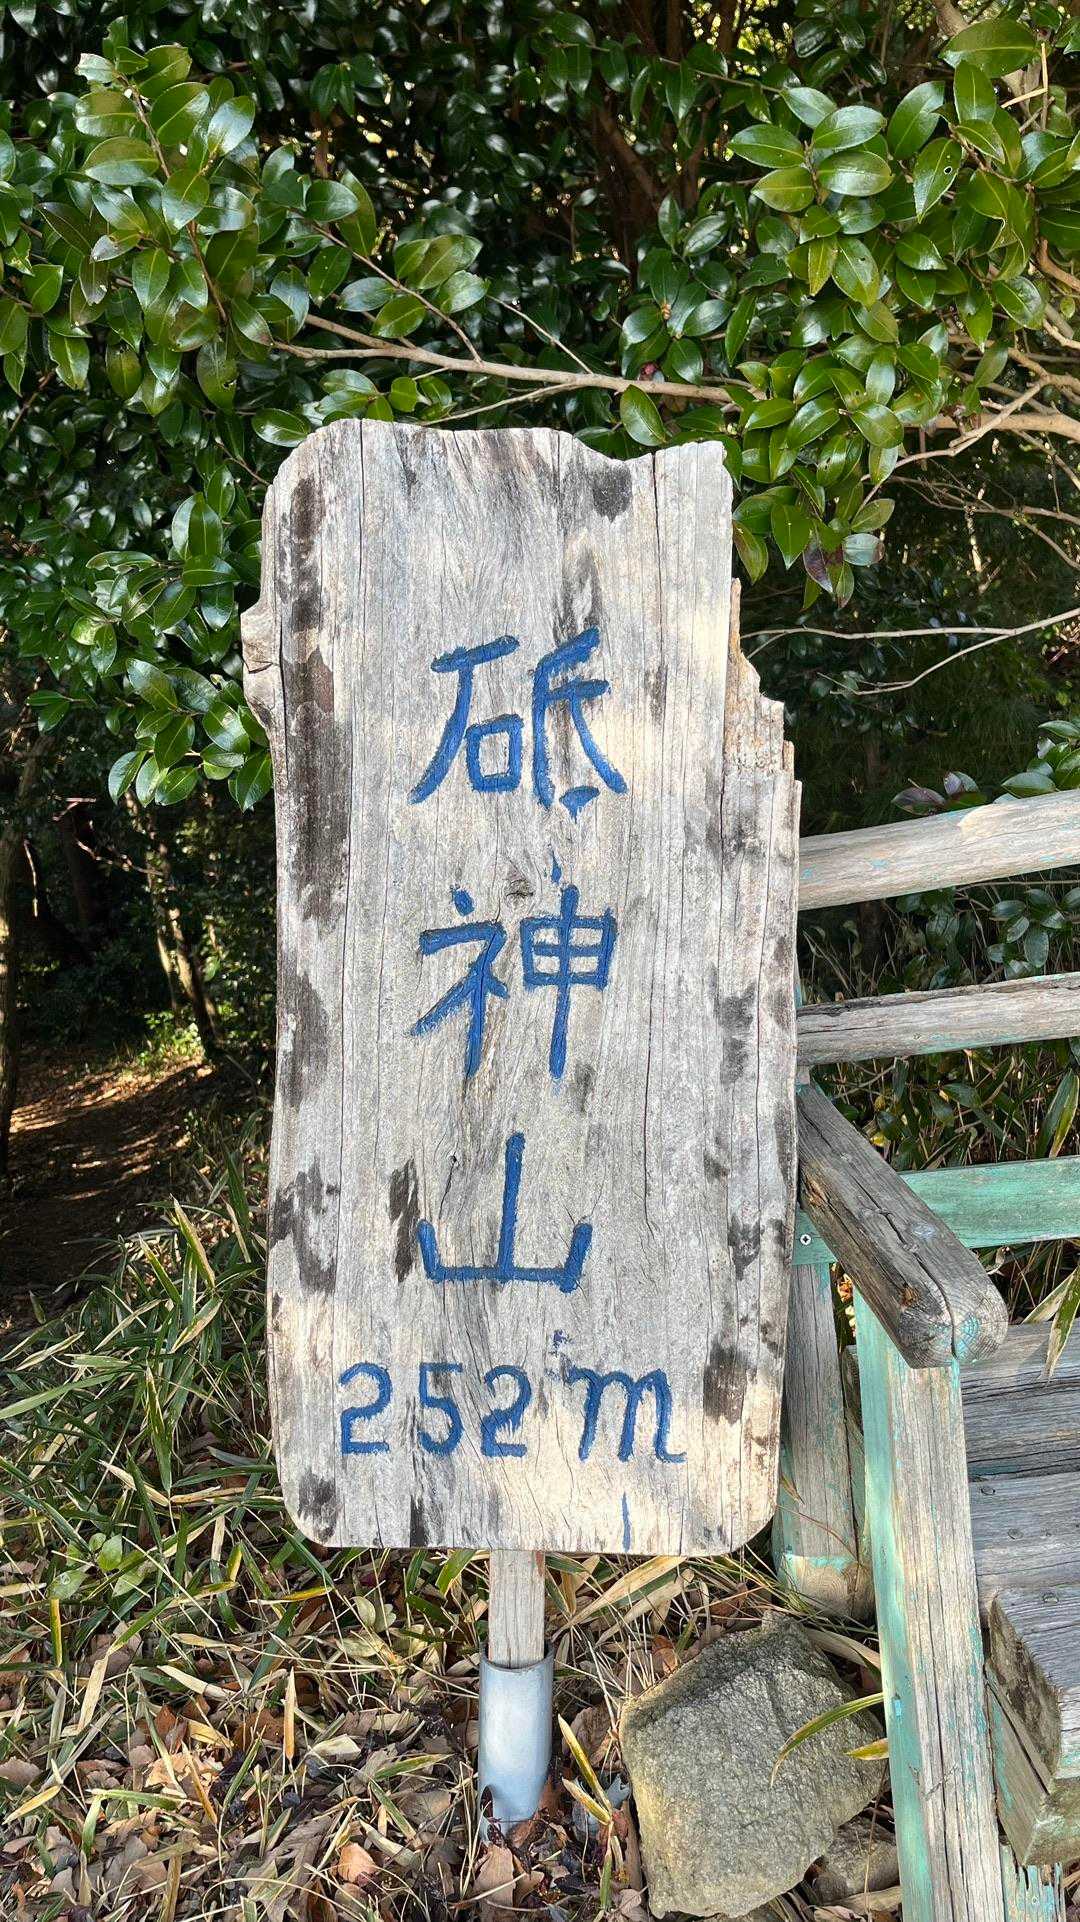 砥神山
252m